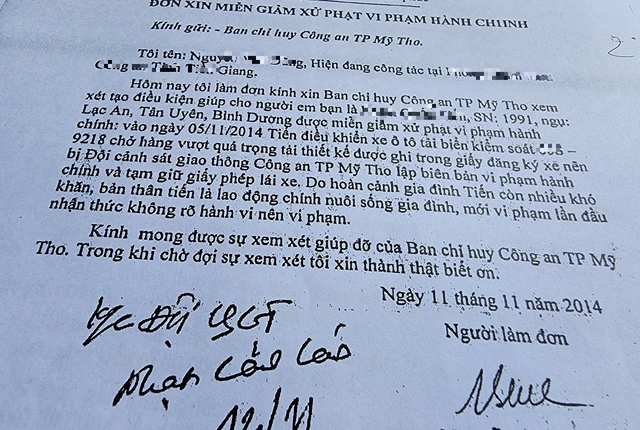 ĐƠN XIN MIỄN GIẢM XỬ PHẠT VI PHẠM HÀNH CHÍNH
Kính gửi: - Ban chỉ huy Công an TP Mỹ Tho.
Tôi tên: Hiện đang công tác tại
Công an Giang,
Hôm nay tôi làm đơn kính xin Ban chỉ huy Công an TP Mỹ Tho xem
xét tạo điều kiện giúp cho người em bạn là SN: 1991, ngụ:
Lạc An, Tân Uyên, Bình Dương được miễn giảm xử phạt vi phạm hành
chính: vào ngày 05/11/2014 Tiến điều khiển xe ô tô tải biển kiểm soát
9218 chở hàng vượt quá trọng tải thiết kế được ghi trong giấy đăng ký xe nên
bị Đội cảnh sát giao thông Công an TP Mỹ Tho lập biên bản vi phạm hành
chính và tạm giữ giấy phép lái xe. Do hoàn cảnh gia đình Tiến còn nhiều khó
khăn, bản thân tiến là lao động chính nuôi sống gia đình, mới vi phạm lần đầu
nhận thức không rõ hành vi nên vi phạm.
Kính mong được sự xem xét giúp đỡ của Ban chỉ huy Công an TP Mỹ
Tho. Trong khi chờ đợi sự xem xét tôi xin thành thật biết ơn.
Ngày 11 tháng 11 năm 2014
Người làm đơn